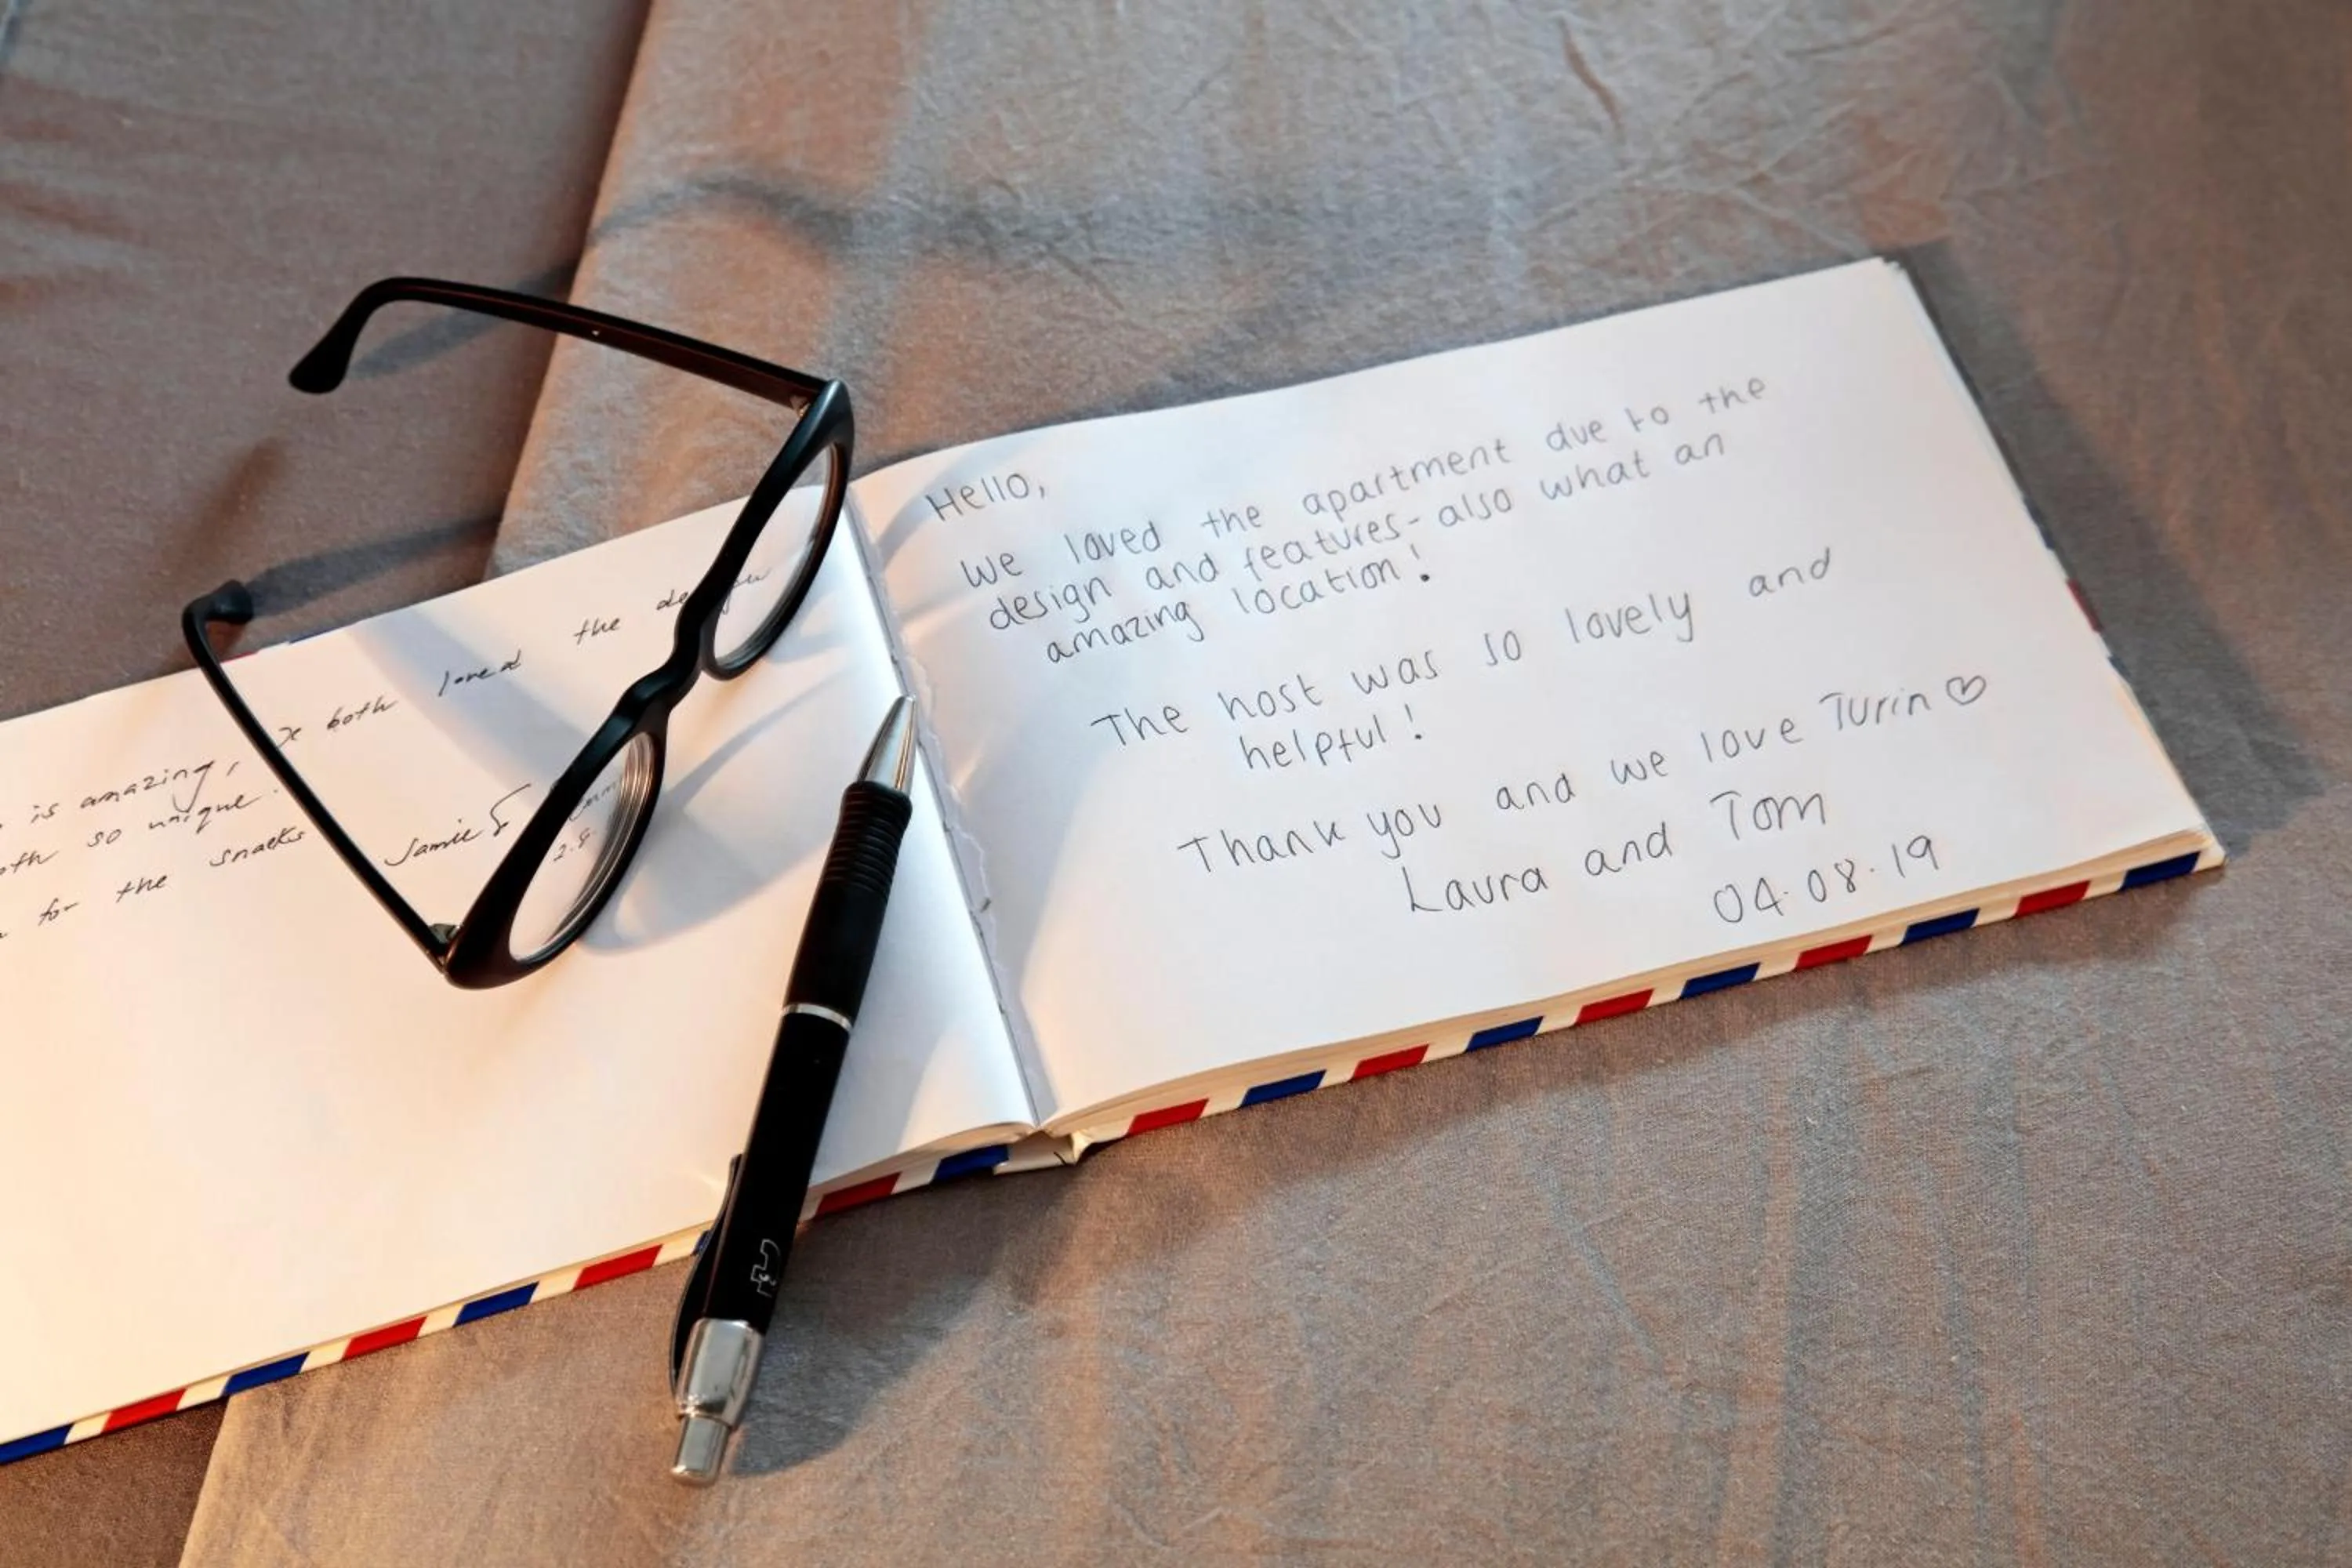 both loved the
is amazing,
so unique.
for the snacks
Jamie &
2.8.
Hello,
We loved the apartment due to the
design and features - also what an
amazing location!
The host was so lovely and
helpful!
Thank you and we love Turin ♡
Laura and Tom
04.08.19